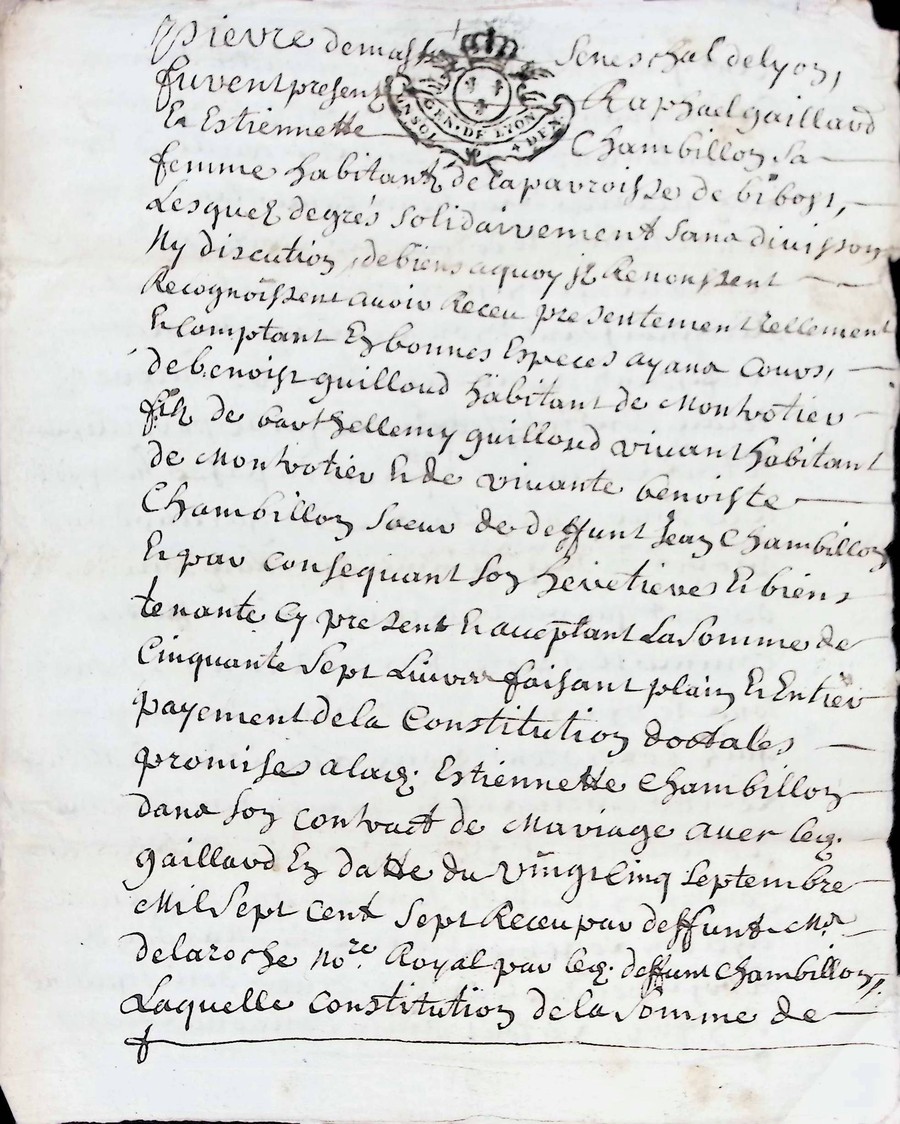 Pierre demasso Seneschal delyon,
furent present Raphael gaillard
Et Estiennette Chambillon sa
GEN. DE LYON
femme habitants delaparroisse de bibost,
Lesquelz degrés Solidairement sans divission
Ny discution debiens aquoy ilz Renonssent
Recognoissent avoir Receu presentement Rellement
Et comptant En bonnes Especes ayans Cours,
de benoist guilloud habitant de Montrotier
filz de barthellemy guilloud vivant habitant
de Montrotier Et de vivante benoiste
Chambillon Soeur de deffunt Jean Chambillon
Et par consequant Son heretieres Et biens
tenante Cy present Et acceptant La Somme de
Cinquante Sept Livres faisant plain Et Entier
payement dela Constitution doctales
promises alad. Estiennette Chambillon
dans son contract de Mariage avec led.
gaillard En datte du vingt Cinq Septembre
Mil Sept Cent Sept Receu par deffunt Mr
delaroche nore. Royal par led. deffunt Chambillon,
Laquelle constitution dela Somme de